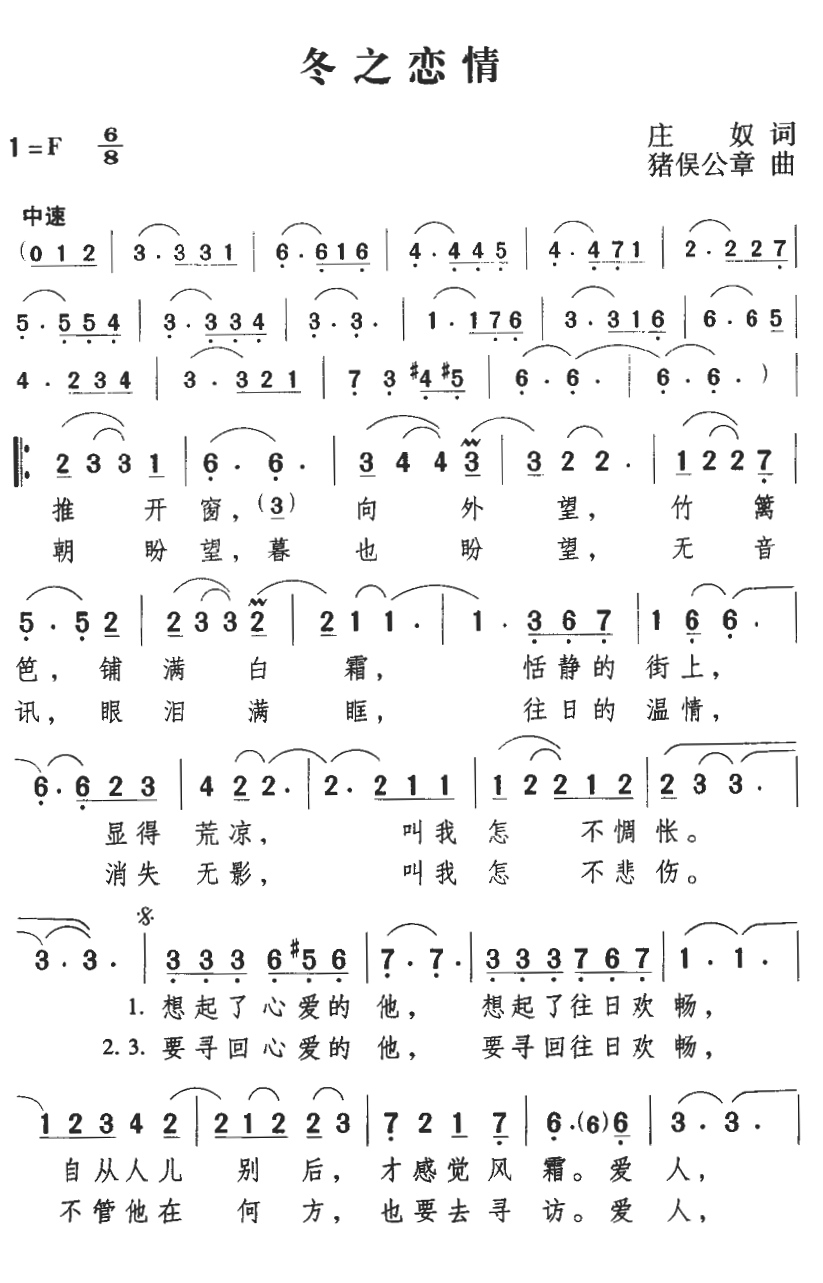 冬之恋情
1=F 6/8
庄 奴 词
猪俣公章 曲
中速
(0 1 2 | 3 . 3 3 1 | 6 . 6 1 6 | 4 . 4 4 5 | 4 . 4 7 1 | 2 . 2 2 7 |
5 . 5 5 4 | 3 . 3 3 4 | 3 . 3 . | 1 . 1 7 6 | 3 . 3 1 6 | 6 . 6 5 |
4 . 2 3 4 | 3 . 3 2 1 | 7 3 #4 #5 | 6 . 6 . | 6 . 6 . ) |
‖: 2 3 3 1 | 6 . 6 . | 3 4 4 3 | 3 2 2 . | 1 2 2 7 |
推 开 窗，(3) 向 外 望，竹 篱
朝 盼 望，暮 也 盼 望，无 音
5 . 5 2 | 2 3 3 2 | 2 1 1 . | 1 . 3 6 7 | 1 6 6 . |
笆，铺 满 白 霜， 恬静的 街上，
讯，眼 泪 满 眶， 往日的 温情，
6 . 6 2 3 | 4 2 2 . | 2 . 2 1 1 | 1 2 2 1 2 | 2 3 3 . |
显得 荒凉， 叫我 怎 不惆 怅。
消失 无影， 叫我 怎 不悲 伤。
3 . 3 . | 3 3 3 6 #5 6 | 7 . 7 . | 3 3 3 7 6 7 | 1 . 1 . |
1. 想起了 心爱的 他， 想起了往日欢 畅，
2.3. 要寻回 心爱的 他， 要寻回往日欢 畅，
1 2 3 4 2 | 2 1 2 2 3 | 7 2 1 7 | 6 . (6) 6 | 3 . 3 . |
自从人儿 别 后，才感觉风 霜。爱 人，
不管他在 何 方，也要去寻 访。爱 人，